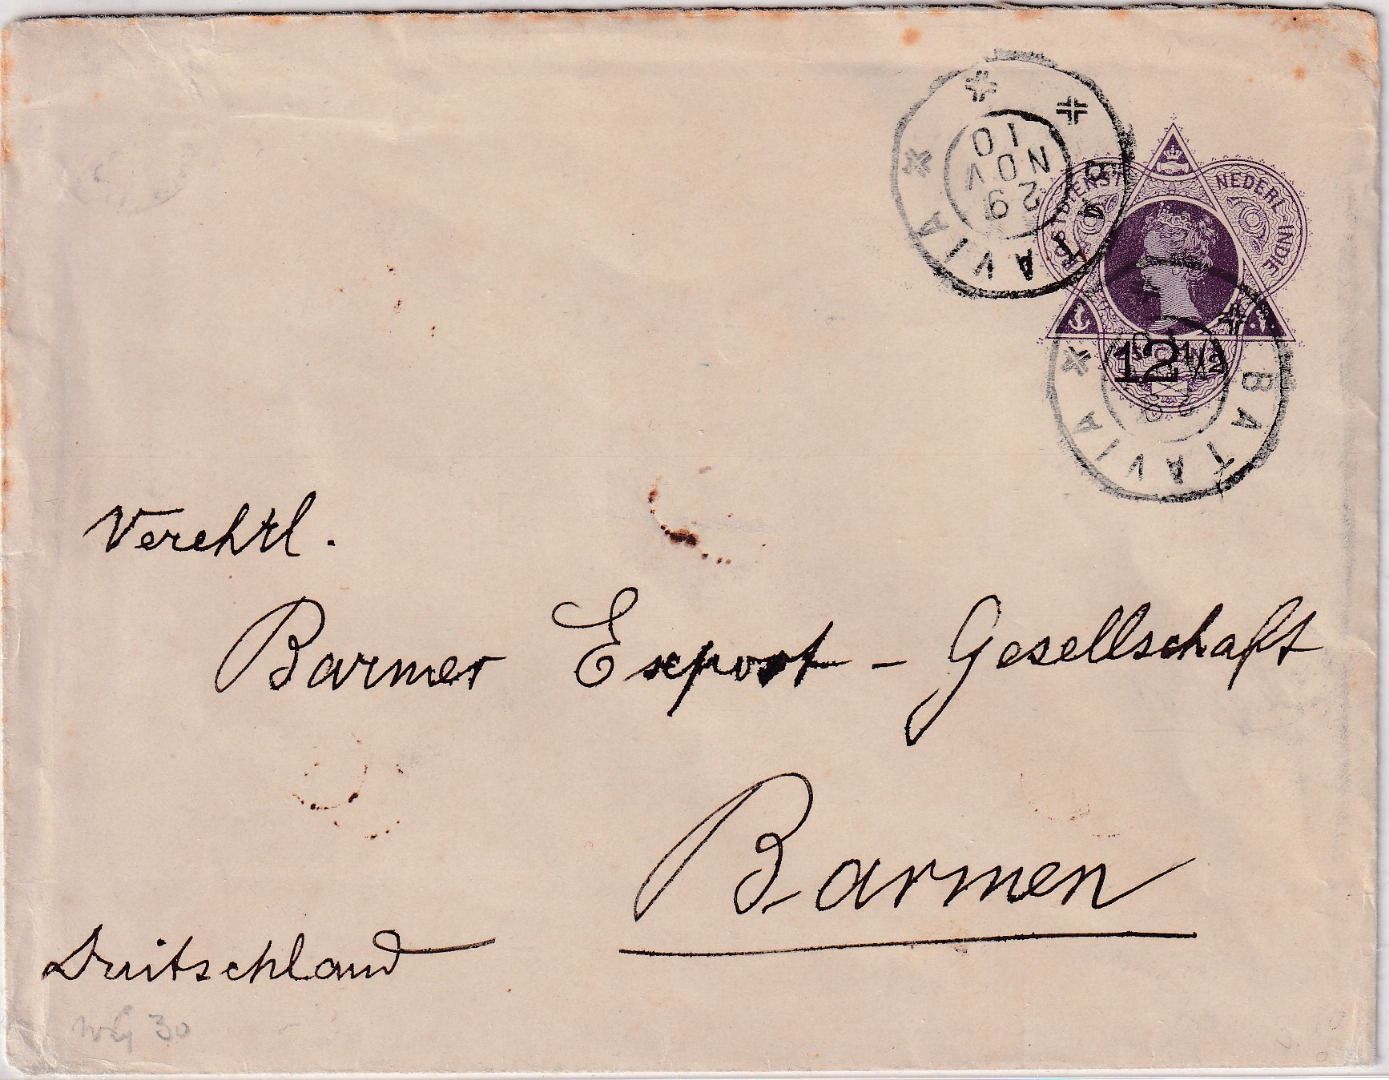 BATAVIA
29
NOV
10
POSTDIENST
NEDERL-INDIE
12 1/2
BATAVIA
Verehrl.
Barmer Export-Gesellschaft
Barmen
Duitschland